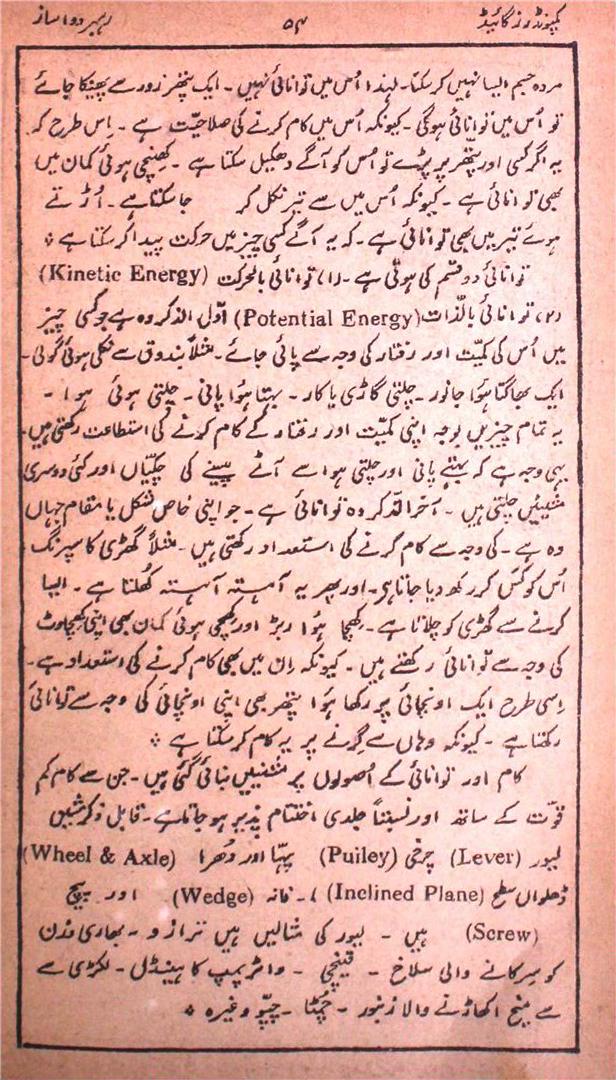 کمپونڈرز گائیڈ ۵۴ رہبر دواساز
مردہ جسم ایسا نہیں کرسکتا۔ لہٰذا اُس میں توانائی نہیں۔ ایک پتھر زور سے پھینکا جائے
تو اُس میں توانائی ہوگی۔ کیونکہ اُس میں کام کرنے کی صلاحیّت ہے۔ اِس طرح کہ
یہ اگر کسی اور پتھر پر پڑے تو اُس کو آگے دھکیل سکتا ہے۔ کھنچی ہوئی کمان میں
بھی توانائی ہے۔ کیونکہ اُس میں سے تیر نکل کر جا سکتا ہے۔ اُڑتے
ہوئے تیر میں بھی توانائی ہے۔ کہ یہ آگے کسی چیز میں حرکت پیدا کرسکتا ہے ٭
توانائی دو قسم کی ہوتی ہے۔ (۱) توانائی بالحرکت (Kinetic Energy)
(۲) توانائی بالذّات (Potential Energy) اوّل الذکر وہ ہے جو کسی چیز
میں اُس کی کمیّت اور رفتار کی وجہ سے پائی جائے۔ مثلاً بندوق سے نکلی ہوئی گولی۔
ایک بھاگتا ہؤا جانور۔ چلتی گاڑی یا کار۔ بہتا ہؤا پانی۔ چلتی ہوئی ہوا۔
یہ تمام چیزیں بوجہ اپنی کمیّت اور رفتار کے کام کرنے کی استطاعت رکھتی ہیں۔
یہی وجہ ہے کہ بہتے پانی اور چلتی ہوا سے آٹے پیسنے کی چکیّاں اور کئی دوسری
مشینیں چلتی ہیں۔ آخر الذّکر وہ توانائی ہے۔ جو اپنی خاص شکل یا مقام جہاں
وہ ہے۔ کی وجہ سے کام کرنے کی استعداد رکھتی ہیں۔ مثلاً گھڑی کا سپرنگ
اُس کو کَس کر رکھ دیا جاتا ہے۔ اور پھر یہ آہستہ آہستہ کُھلتا ہے۔ ایسا
کرنے سے گھڑی کو چلاتا ہے۔ کھچا ہؤا ربڑ اور کھچی ہوئی کمان بھی اپنی کھچاوٹ
کی وجہ سے توانائی رکھتے ہیں۔ کیونکہ اِن میں بھی کام کرنے کی استعداد ہے۔
اِسی طرح ایک اونچائی پر رکھا ہؤا پتھر بھی اپنی اونچائی کی وجہ سے توانائی
رکھتا ہے۔ کیونکہ وہاں سے گِرنے پر یہ کام کرسکتا ہے ٭
کام اور توانائی کے اُصولوں پر مشینیں بنائی گئی ہیں۔ جن سے کام کم
قوّت کے ساتھ اور نسبتاً جلدی اختتام پذیر ہو جاتا ہے۔ قابل ذکر مشینیں
لیور (Lever) چرخی (Puiley) پہیّا اور دُھرا (Wheel & Axle)
ڈھلواں سطح (Inclined Plane) ۔ فانہ (Wedge) اور پیچ
(Screw) ہیں۔ لیور کی مثالیں ہیں ترازو۔ بھاری وزن
کو سِرکانے والی سلاخ۔ قینچی۔ واٹر پمپ کا ہینڈل۔ لکڑی سے
سے میخ اکھاڑنے والا زنبور۔ چُمٹا۔ چپّو وغیرہ ٭